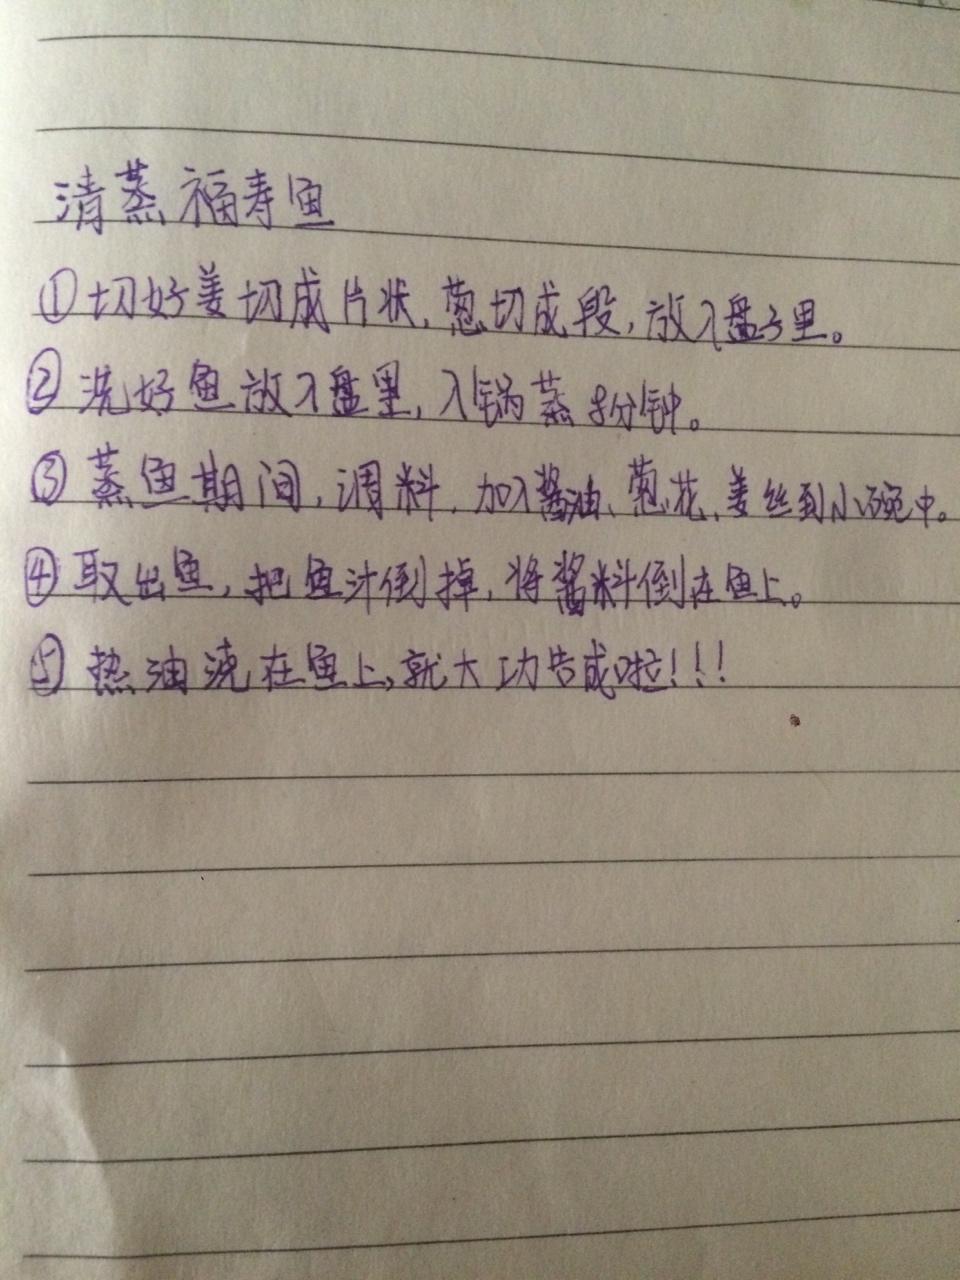 清蒸福寿鱼
①切好姜切成片状,葱切成段,放入盘子里。
②洗好鱼放入盘里,入锅蒸8分钟。
③蒸鱼期间,调料,加入酱油、葱花、姜丝到小碗中。
④取出鱼,把鱼汁倒掉,将酱料倒在鱼上。
⑤热油浇在鱼上,就大功告成啦!!!